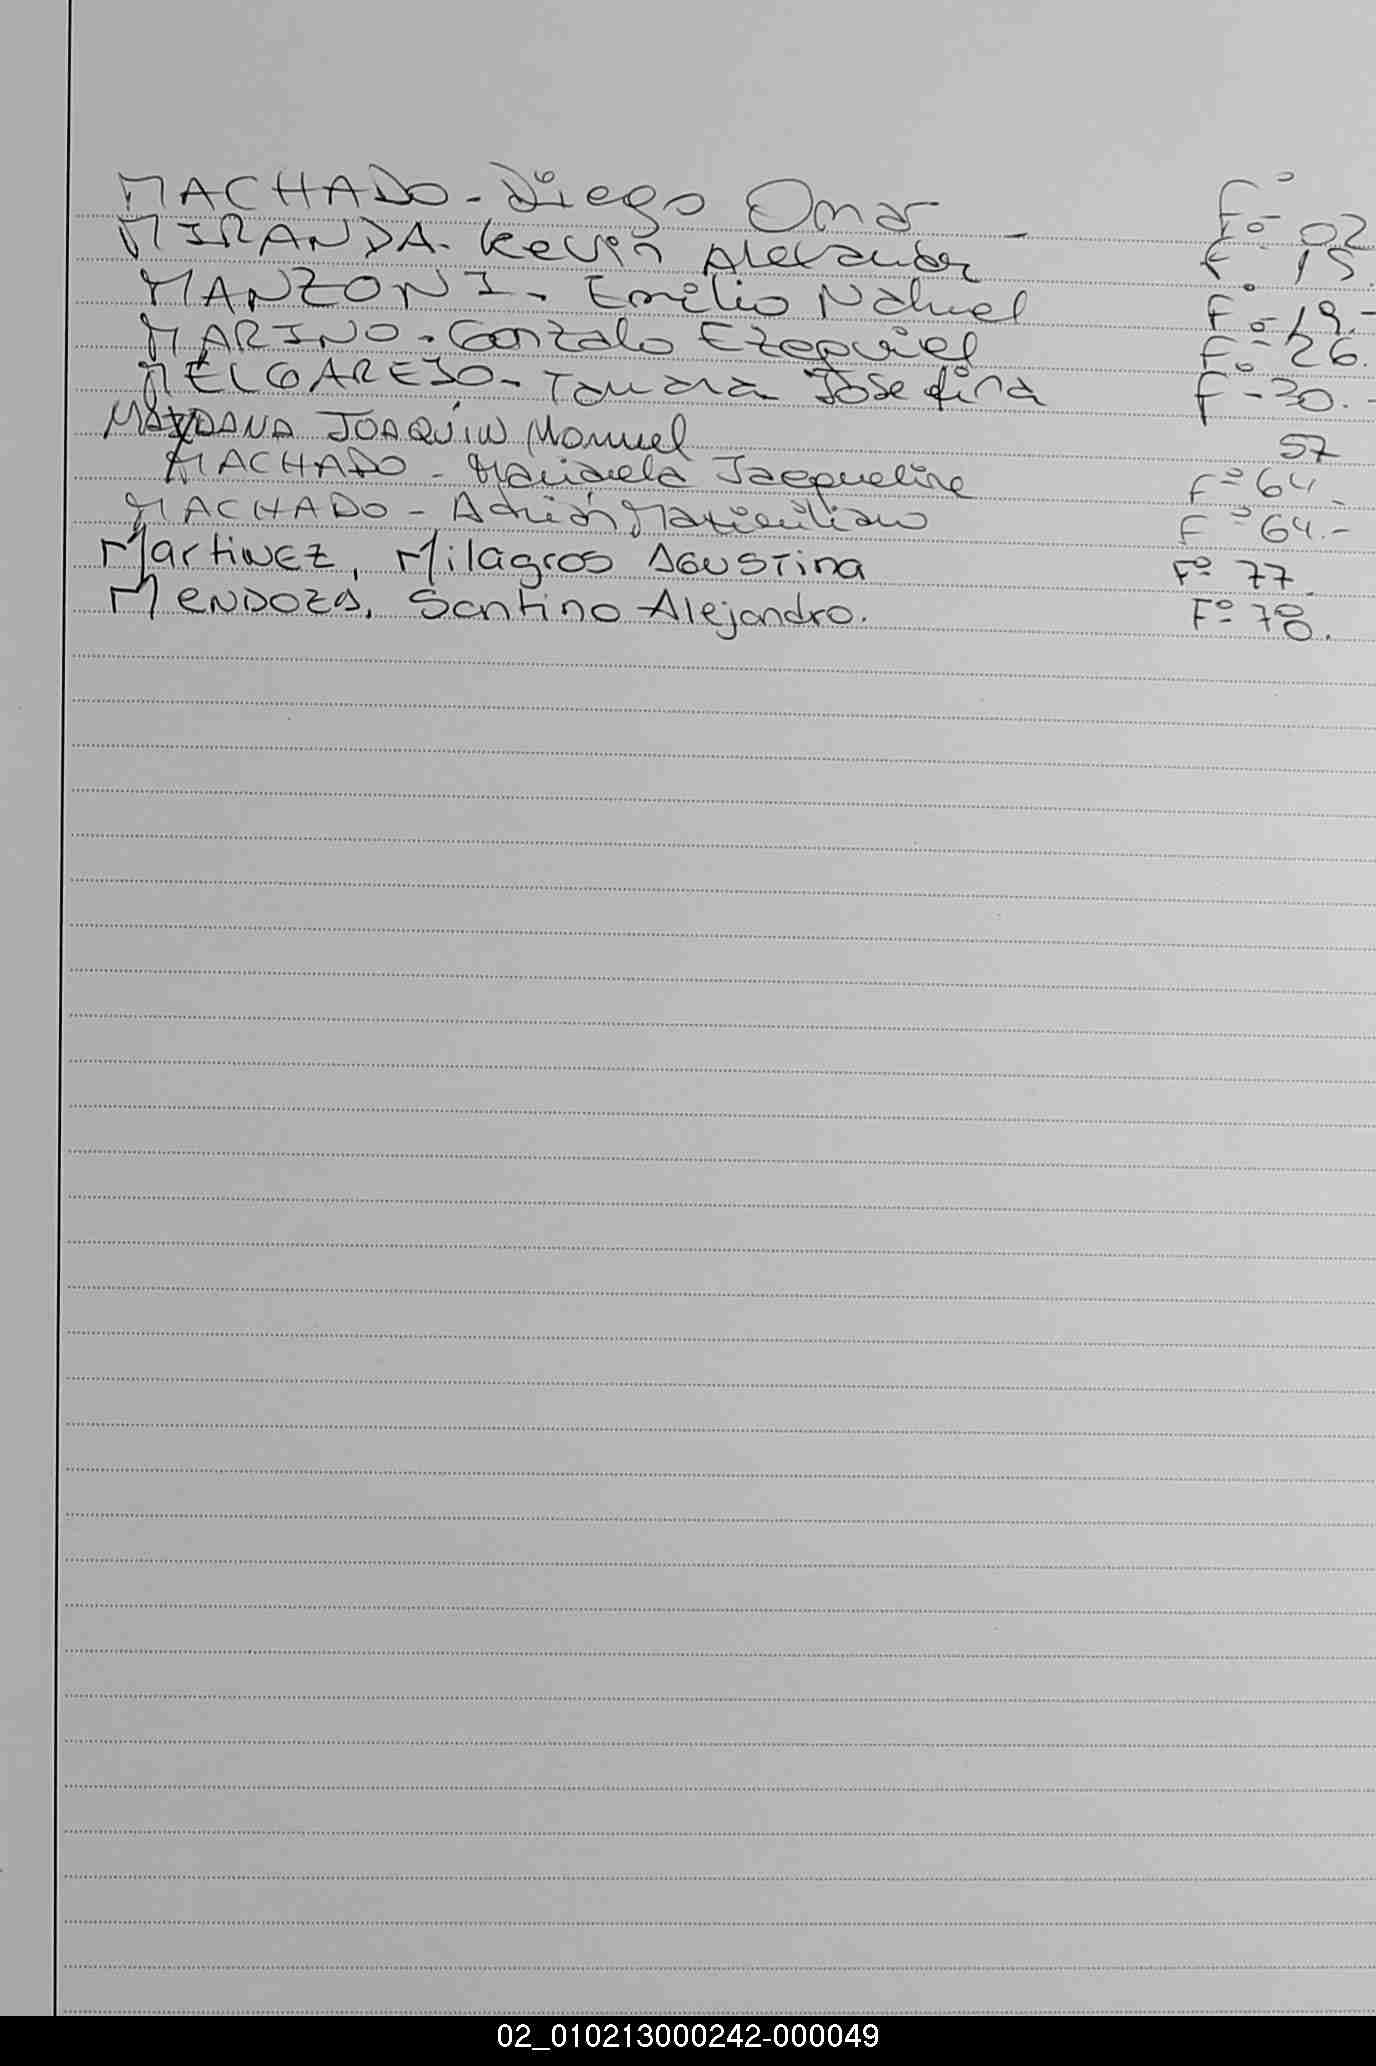 MACHADO - Diego Omar - Fº 02
MIRANDA - Kevin Alexander Fº 15
MANZONI - Emilio Nahuel Fº 19.-
MARINO - Gonzalo Ezequiel Fº 26.
MELGAREJO - Tamara Josefina Fº 30.-
MAYDANA JOAQUÍN Manuel 57
MACHADO - Marianela Jacqueline Fº 64.-
MACHADO - Adrián Maximiliano Fº 64.-
Martinez, Milagros Agustina Fº 77.
MENDOZA, Santino Alejandro. Fº 78.
02_010213000242-000049